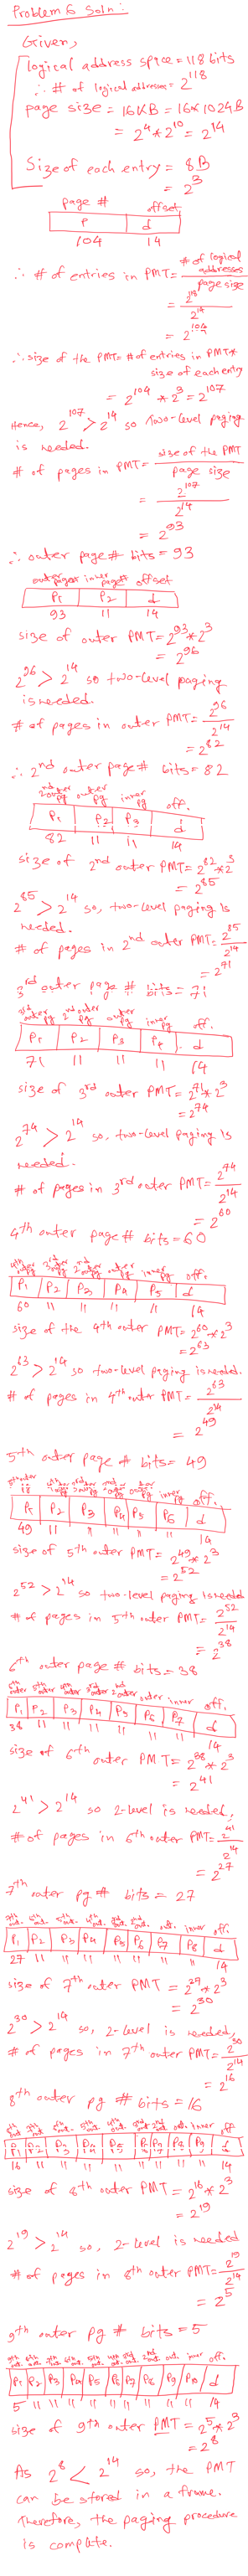 Problem 6 Soln:
Given,
logical address space = 118 bits
∴ # of logical addresses = 2^118
page size = 16KB = 16*1024B
= 2^4 * 2^10 = 2^14
Size of each entry = 8B
= 2^3
page # offset
P d
104 14
∴ # of entries in PMT = # of logical addresses / page size
= 2^118 / 2^14
= 2^104
∴ size of the PMT = # of entries in PMT *
size of each entry
= 2^104 * 2^3 = 2^107
Hence, 2^107 > 2^14 so Two-level paging
is needed.
# of pages in PMT = size of the PMT / page size
= 2^107 / 2^14
= 2^93
∴ outer page # bits = 93
outer page # inner page # offset
P1 P2 d
93 11 14
size of outer PMT = 2^93 * 2^3
= 2^96
2^96 > 2^14 so two-level paging
is needed.
# of pages in outer PMT = 2^96 / 2^14
= 2^82
∴ 2nd outer page # bits = 82
2nd outer pg outer pg inner pg off.
P1 P2 P3 d
82 11 11 14
size of 2nd outer PMT = 2^82 * 2^3
= 2^85
2^85 > 2^14 so, two-level paging is
needed.
# of pages in 2nd outer PMT = 2^85 / 2^14
= 2^71
3rd outer page # bits = 71
3rd outer pg 2nd outer pg outer pg inner pg off.
P1 P2 P3 P4 d
71 11 11 11 14
size of 3rd outer PMT = 2^71 * 2^3
= 2^74
2^74 > 2^14 so, two-level paging is
needed.
# of pages in 3rd outer PMT = 2^74 / 2^14
= 2^60
4th outer page # bits = 60
4th outer pg 3rd outer pg 2nd outer pg outer pg inner pg off.
P1 P2 P3 P4 P5 d
60 11 11 11 11 14
size of the 4th outer PMT = 2^60 * 2^3
= 2^63
2^63 > 2^14 so two-level paging is needed.
# of pages in 4th outer PMT = 2^63 / 2^14
= 2^49
5th outer page # bits = 49
5th outer pg 4th outer pg 3rd outer pg 2nd outer pg outer pg inner pg off.
P1 P2 P3 P4 P5 P6 d
49 11 11 11 11 11 14
size of 5th outer PMT = 2^49 * 2^3
= 2^52
2^52 > 2^14 so two-level paging is needed
# of pages in 5th outer PMT = 2^52 / 2^14
= 2^38
6th outer page # bits = 38
6th outer 5th outer 4th outer 3rd outer 2nd outer outer inner off.
P1 P2 P3 P4 P5 P6 P7 d
38 11 11 11 11 11 11 14
size of 6th
outer PMT = 2^38 * 2^3
= 2^41
2^41 > 2^14 so 2-level is needed.
# of pages in 6th outer PMT = 2^41 / 2^14
= 2^27
7th outer pg # bits = 27
7th out. 6th out. 5th out. 4th out. 3rd out. 2nd out. out. inner off.
P1 P2 P3 P4 P5 P6 P7 P8 d
27 11 11 11 11 11 11 11 14
size of 7th outer PMT = 2^27 * 2^3
= 2^30
2^30 > 2^14 so, 2-level is needed
# of pages in 7th outer PMT = 2^30 / 2^14
= 2^16
8th outer pg # bits = 16
8th out. 7th out. 6th out. 5th out. 4th out. 3rd out. 2nd out. out. inner off
P1 P2 P3 P4 P5 P6 P7 P8 P9 d
16 11 11 11 11 11 11 11 11 14
size of 8th outer PMT = 2^16 * 2^3
= 2^19
2^19 > 2^14 so, 2-level is needed
# of pages in 8th outer PMT = 2^19 / 2^14
= 2^5
9th outer pg # bits = 5
9th out. 8th out. 7th out. 6th out. 5th out. 4th out. 3rd out. 2nd out. out. inner off.
P1 P2 P3 P4 P5 P6 P7 P8 P9 P10 d
5 11 11 11 11 11 11 11 11 11 14
size of 9th outer PMT = 2^5 * 2^3
= 2^8
As 2^8 < 2^14 so, the PMT
can be stored in a frame.
Therefore, the paging procedure
is complete.